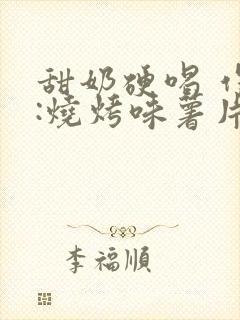 甜奶硬唱
:燒烤味薯片
李福順